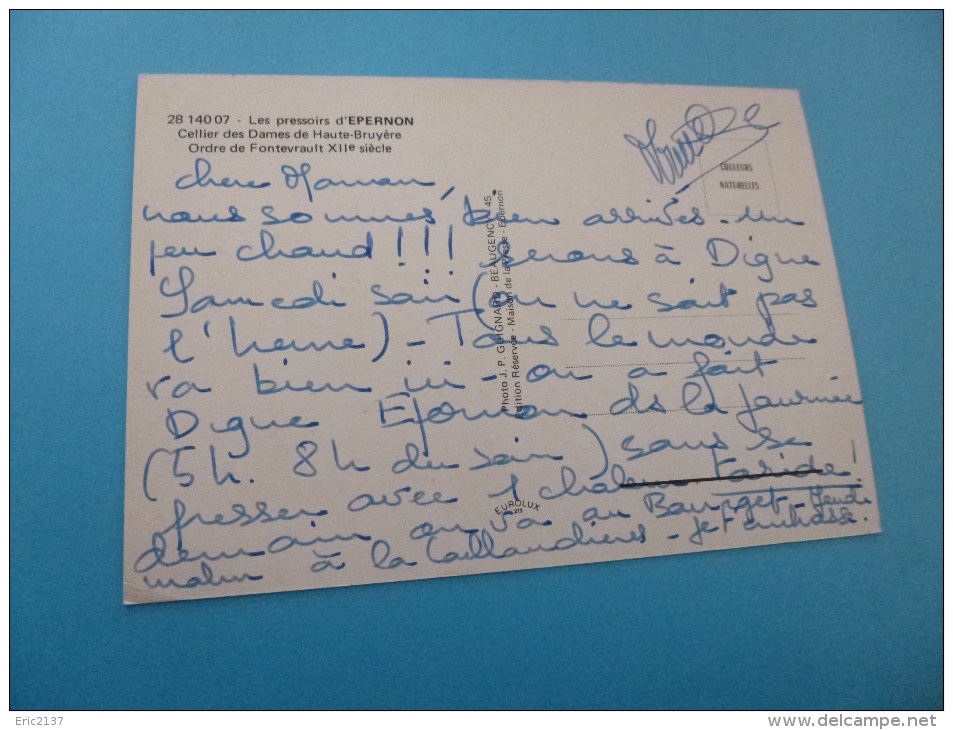 28 140 07 - Les pressoirs d'EPERNON
Cellier des Dames de Haute-Bruyère
Ordre de Fontevrault XIIe siècle
COULEURS
NATURELLES
chere Maman,
nous sommes bien arrivés - un
peu chaud !!! serons à Digne
Samedi soir (on ne sait pas
l'heure) - Tous le monde
va bien ici - on a fait
Digne Epernon ds la journée
(5h. 8h du soir) sans se
presser avec 1 chaleur torride!
demain on va au Bourget - Jeudi
matin à la Caillaudières - je t'embrasse.
Photo J. P. GUIGNARD - BEAUGENCY - 45
Edition Réservée - Maison de la Presse - Epernon
EUROLUX
Eric2137
www.delcampe.net